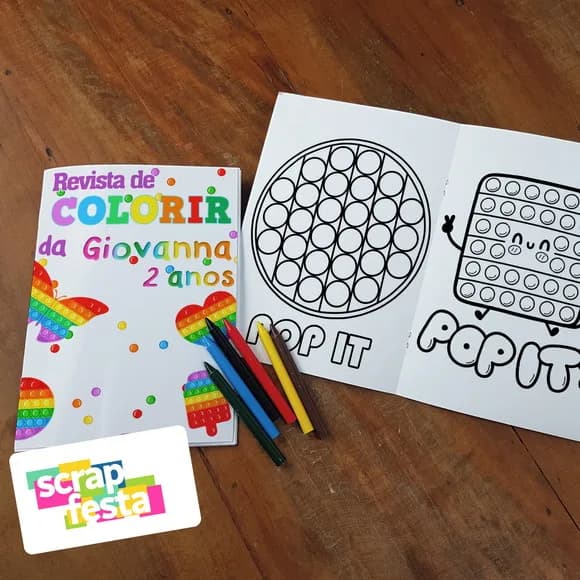 Revista de
COLORIR
da Giovanna
2 anos
POP IT
POP IT
scrap
festa